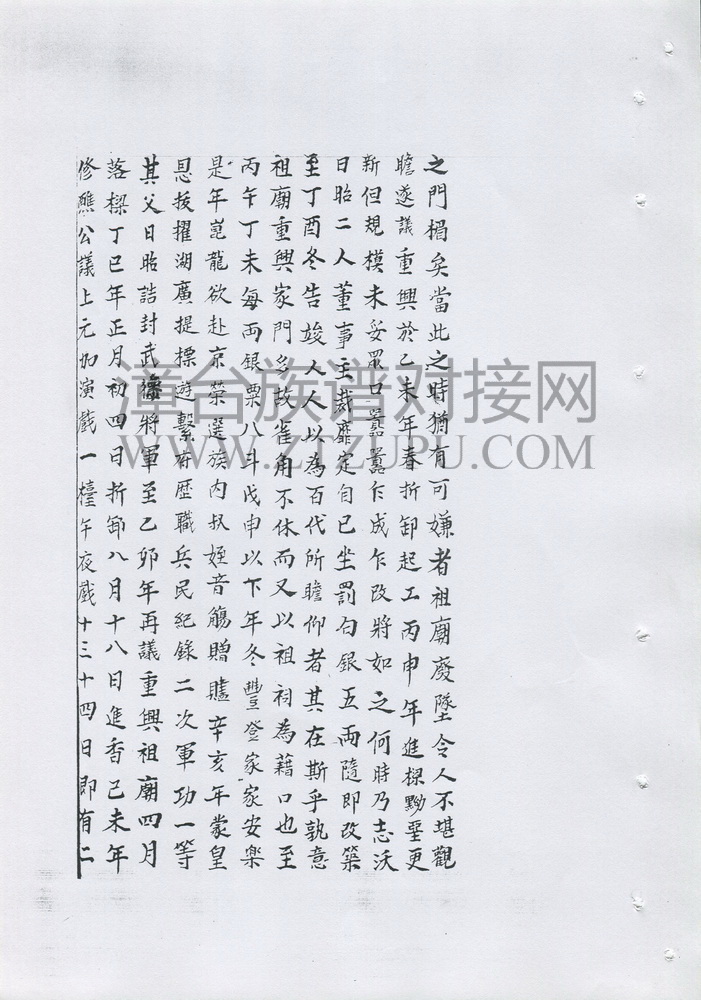 之門楣矣當此之時猶有可嫌者祖廟廢墜令人不堪觀
瞻遂議重興於乙未年春折卸起工丙申年進樑黝堊更
新但規模未妥眾口囂囂乍成乍改將如之何時乃志沃
日昭二人董事主裁靡定自己坐罰勻銀五兩隨即改築
至丁酉冬告竣人人以為百代所瞻仰者其在斯乎孰意
祖廟重興家門多故雀角不休而又以祖祠為藉口也至
丙午丁未每両銀粟八斗戊申以下年冬豐登家家安樂
是年崑龍欲赴京榮選族內叔姪音觴贈贐辛亥年蒙皇
恩拔擢湖廣提標遊擊府歷職兵民紀錄二次軍功一等
其父日昭誥封武將軍至乙卯年再議重興祖廟四月
落樑丁巳年正月初四日折卸八月十八日進香己未年
修醮公議上元加演戲一檯午夜戲十三十四日即有二
漳台族谱对接网
WWW.ZTZUPU.COM